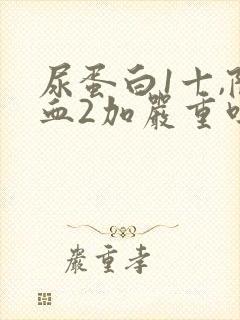 尿蛋白1十,
血2加嚴重
嚴重孝